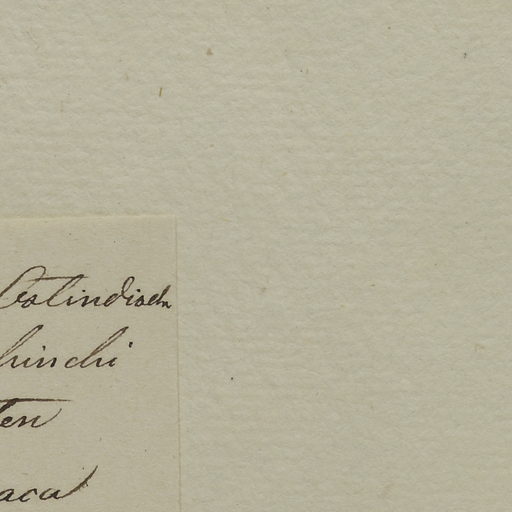 Ostindisch
hinchi
ten
aca